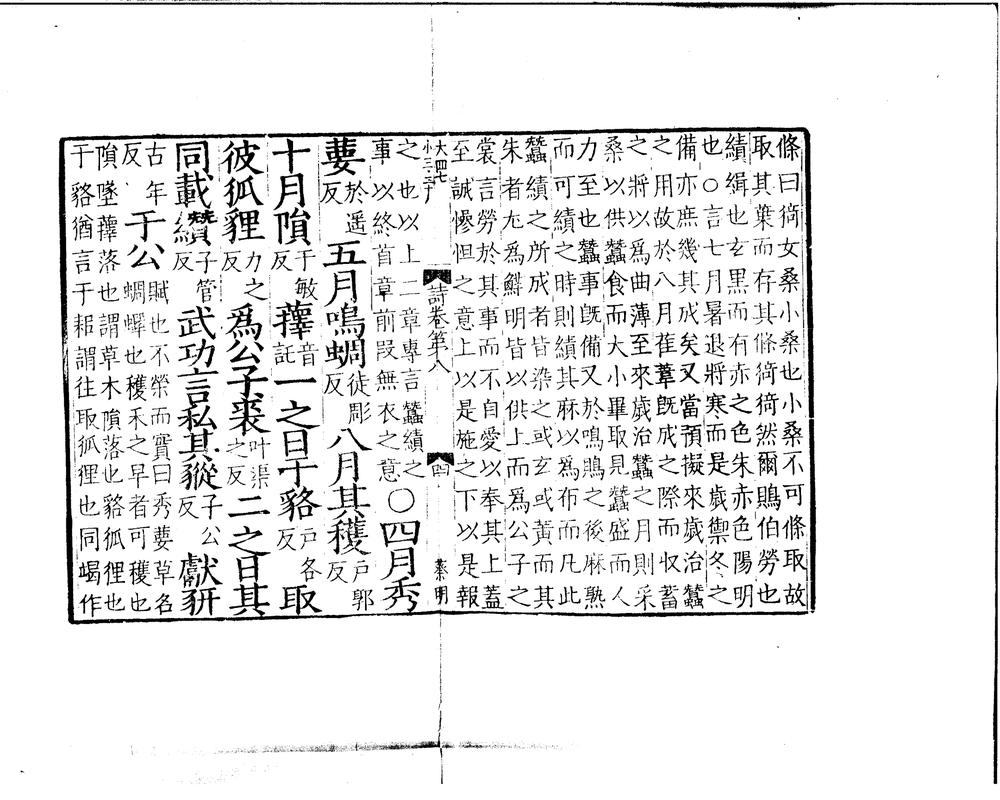 條曰猗女桑小桑也小桑不可條取故
取其葉而存其條猗猗然爾鵙伯勞也
績緝也玄黑而有赤之色朱赤色陽明
也○言七月暑退將寒而是歲禦冬之
備亦庶幾其成矣又當預擬來歲治蠶
之用故於八月萑葦旣成之際而收蓄
之將以為曲薄至來歲治蠶之月則采
桑以供蠶食而大小畢取見蠶盛而人
力至也蠶事旣備又於鳴鵙之後麻熟
而可績之時則績其麻以為布而凡此
蠶績之所成者皆染之或玄或黃而其
朱者尤為鮮明皆以供上而為公子之
裳言勞於其事而不自愛以奉其上蓋
至誠慘怛之意上以是施之下以是報
大四七
小三三十
詩卷第八
四
蔡明
之也以上二章專言蠶績之
事以終首章前段無衣之意
○四月秀
葽
於遥
反
五月鳴蜩
徒彫
反
八月其穫
戶郭
反
十月隕
于敏
反
蘀
音
託
一之日于貉
戶各
反
取
彼狐貍
力之
反
為公子裘
叶渠
之反
二之日其
同載纘
子管
反
武功言私其豵
子公
反
獻豜
古年
反
于公
賦也不榮而實曰秀葽草名
蜩蟬也穫禾之早者可穫也
隕墜蘀落也謂草木隕落也貉狐狸也
于貉猶言于耜謂往取狐狸也同竭作